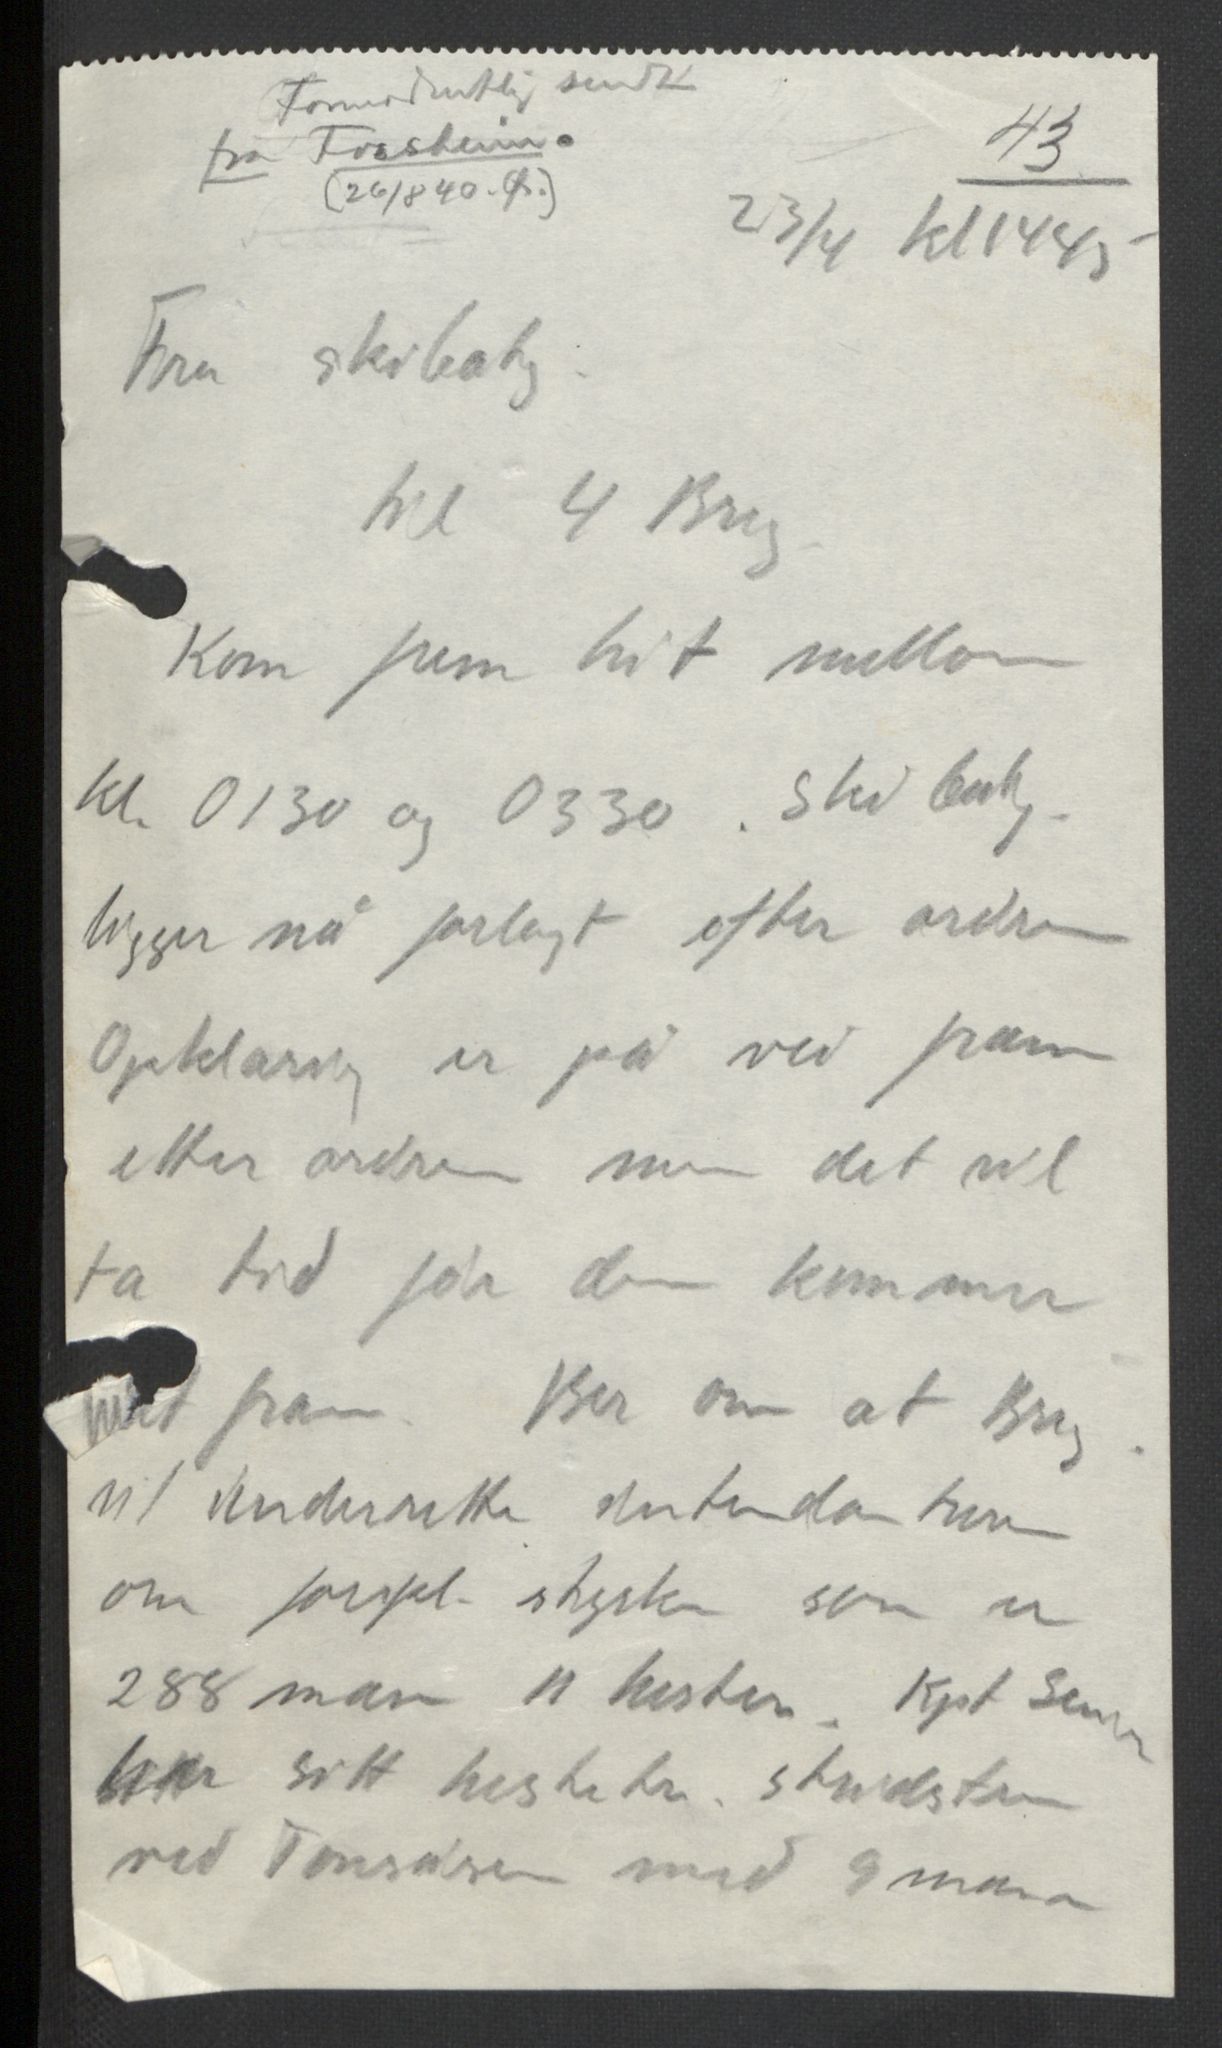 Formodentlig sendt
fra Fossheim.
(26/8 40. Ø.)
43
23/4 kl 1445
Fra skibatlj.
til 4 Brig.
Kom frem hit mellom
kl. 0130 og 0330. Skibatlj.
ligger nå forlagt efter ordren
Opklaring er på vei fram
etter ordren men det vil
ta tid før den kommer
fram. Ber om at Brig.
vil underrette intendanturen
om forpl. styrke som er
288 mann 11 hester. Kpt
har sitt heste
ved Tonsåsen med 9 mann